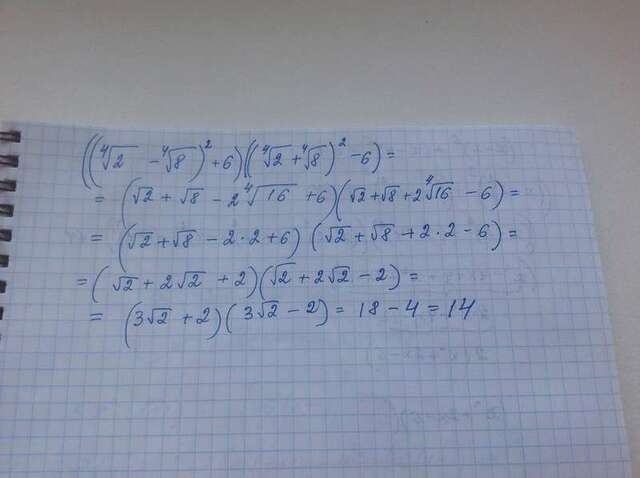 ((⁴√2 - ⁴√8)² + 6)((⁴√2 + ⁴√8)² - 6) =
= (√2 + √8 - 2⁴√16 + 6)(√2 + √8 + 2⁴√16 - 6) =
= (√2 + √8 - 2·2 + 6)(√2 + √8 + 2·2 - 6) =
= (√2 + 2√2 + 2)(√2 + 2√2 - 2) =
= (3√2 + 2)(3√2 - 2) = 18 - 4 = 14